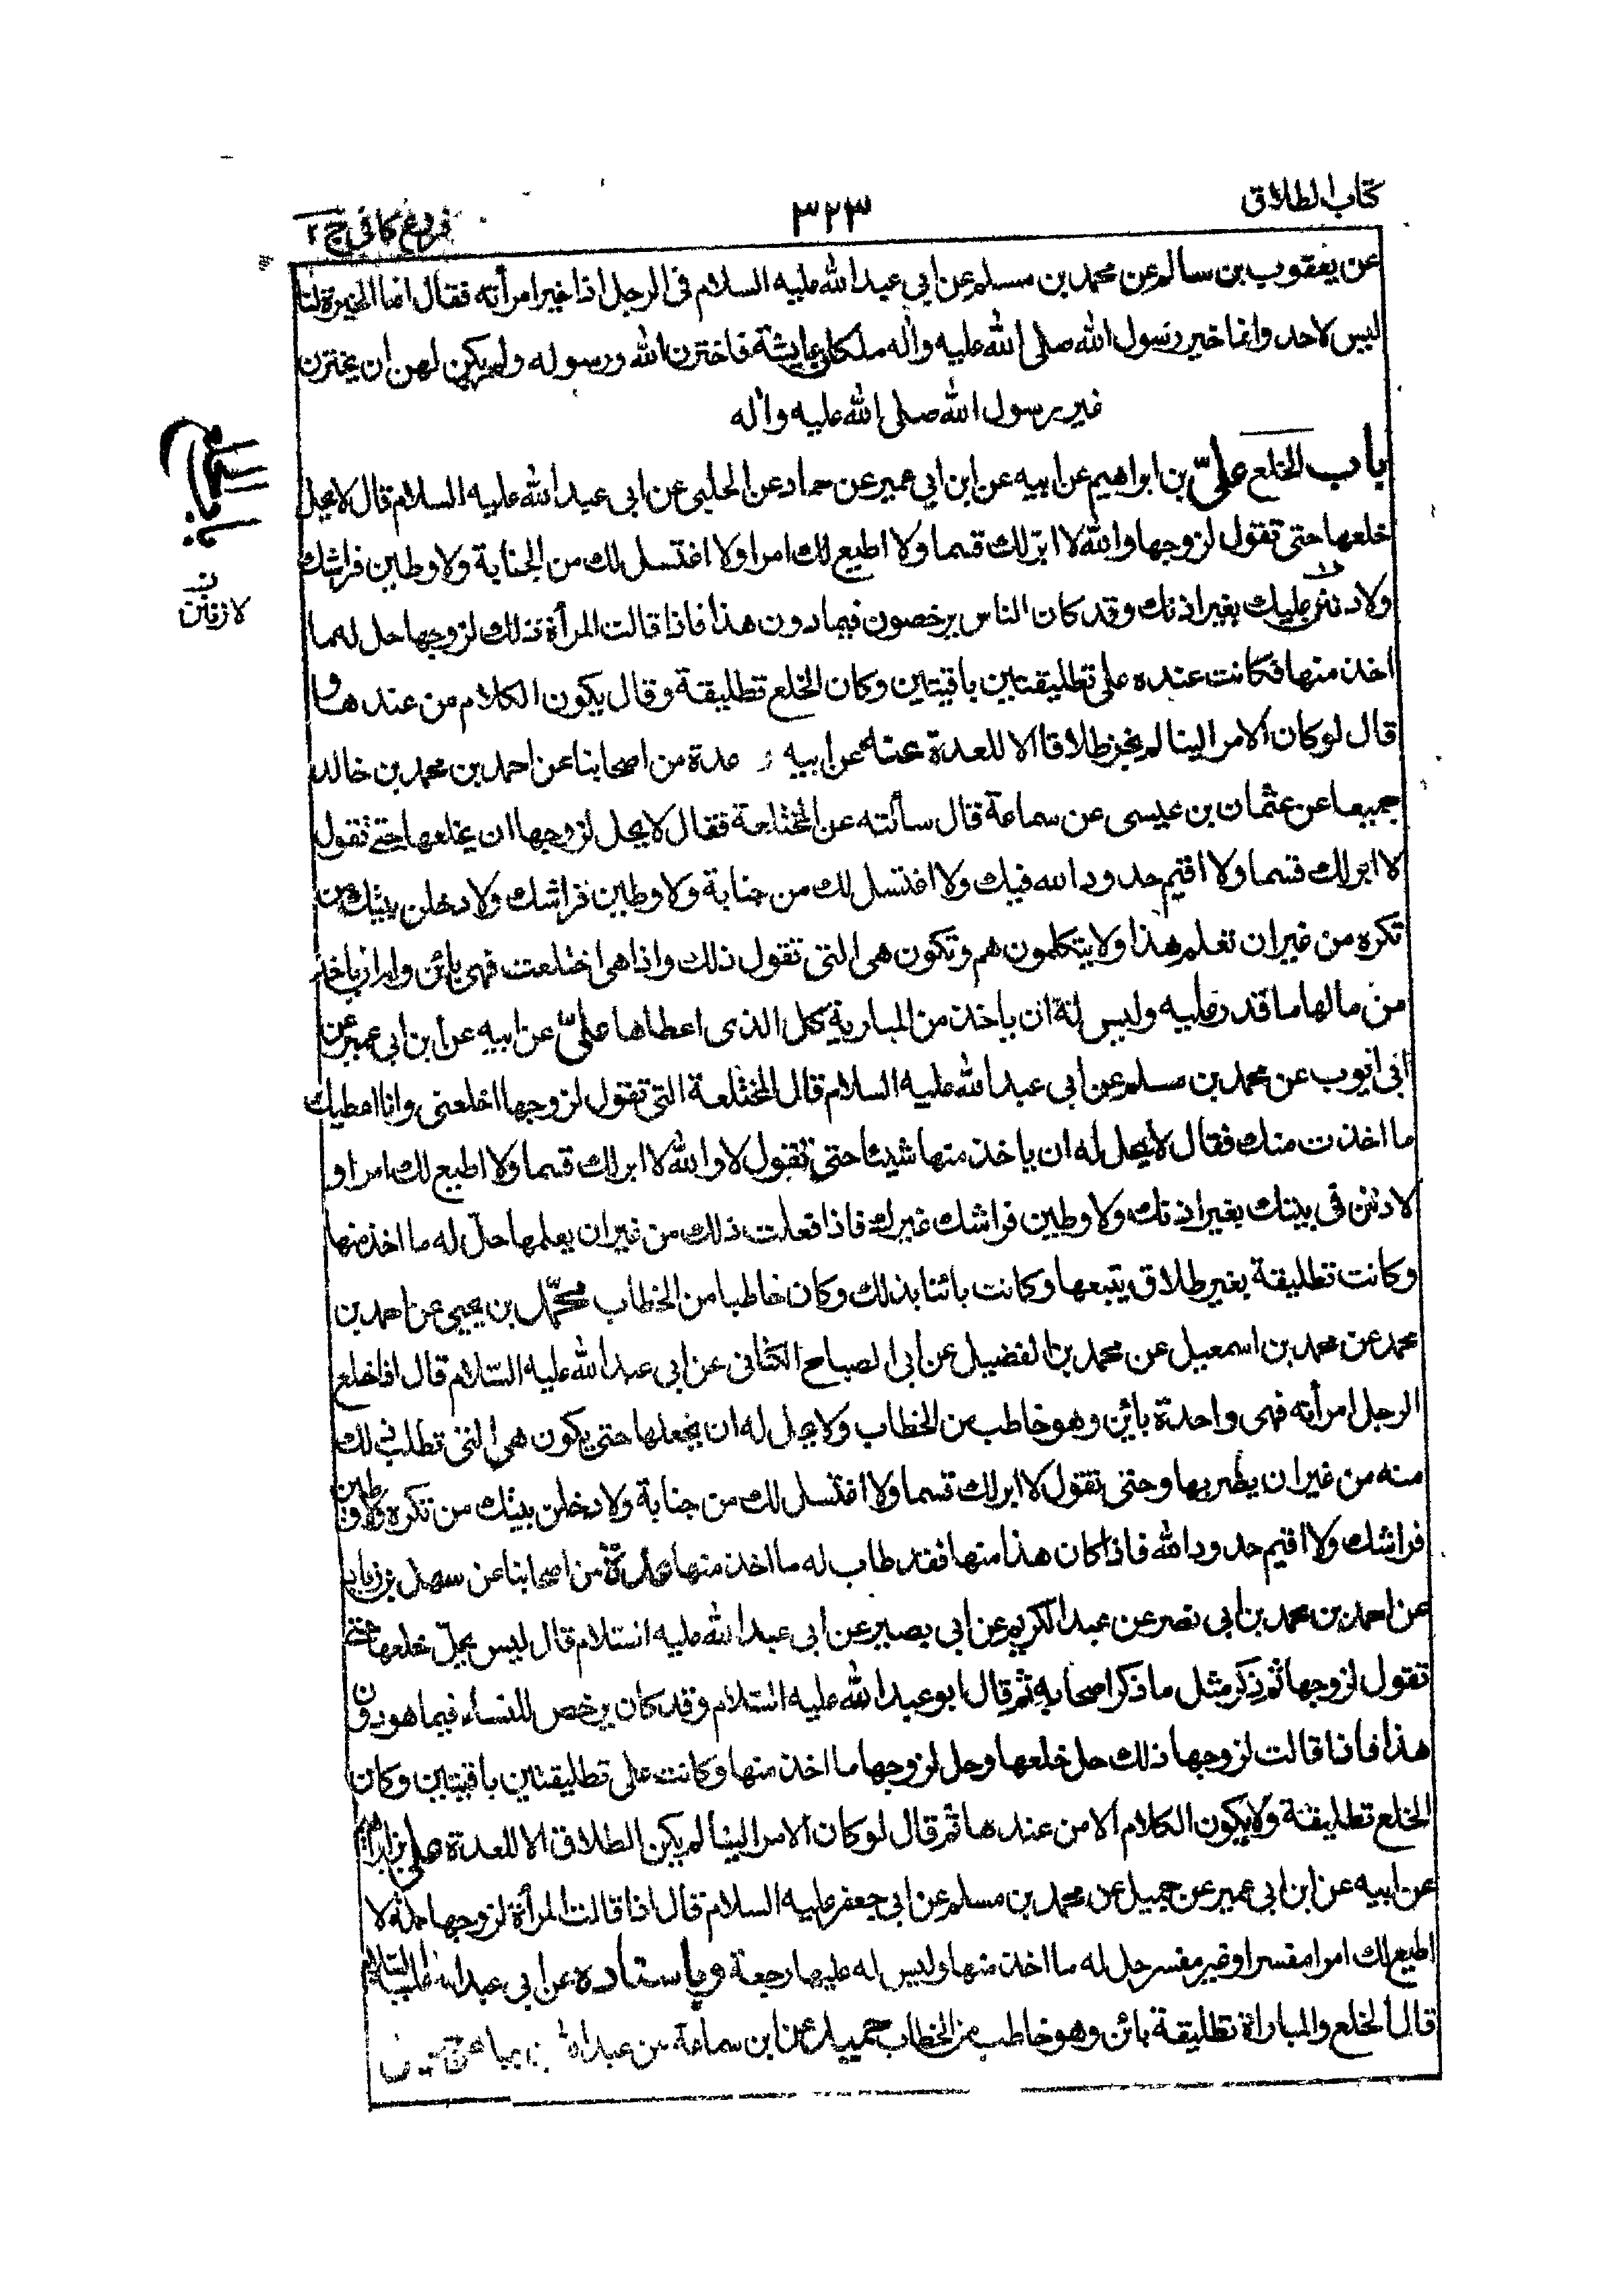 كتاب الطلاق
٣٢٣
فروع كافى ج ٢
عن يعقوب بن سالم عن محمد بن مسلم عن ابي عبد الله عليه السلام فى الرجل اذا خير امرأته فقال انما الخيرة لنا
ليس لاحد وانما خير رسول الله صلى الله عليه واله لمكان عايشة فاخترن الله ورسوله ولم يكن لهن ان يخترن
غير رسول الله صلى الله عليه واله
باب الخلع علىّ بن ابراهيم عن ابيه عن ابن ابي عمير عن حماد عن الحلبي عن ابى عبد الله عليه السلام قال لا يحل
خلعها حتى تقول لزوجها والله لا ابرّ لك قسما ولا اطيع لك امرا ولا اغتسل لك من الجنابة ولاوطين فراشك
ولادنن عليك بغير اذنك وقد كان الناس يرخصون فيما دون هذا فاذا قالت المرأة ذلك لزوجها حل له ما
اخذ منها فكانت عنده على تطليقتين باقيتين وكان الخلع تطليقة وقال يكون الكلام من عندها و
قال لو كان الامر الينا لم نجز طلاقا الا للعدة عنه عن ابيه و عدة من اصحابنا عن احمد بن محمد بن خالد
جميعا عن عثمان بن عيسى عن سماعة قال سألته عن المختلعة فقال لا يحل لزوجها ان يخلعها حتى تقول
لا ابر لك قسما ولا اقيم حدود الله فيك ولا اغتسل لك من جنابة ولاوطين فراشك ولادخلن بيتك من
تكره من غير ان تعلم هذا ولا يتكلمون هم وتكون هى التى تقول ذلك واذا هى اختلعت فهى بائن وله ان ياخذ
من مالها ما قدر عليه وليس له ان ياخذ من المبارية كل الذى اعطاها علىّ عن ابيه عن ابن ابي عمير عن
ابى ايوب عن محمد بن مسلم عن ابى عبد الله عليه السلام قال المختلعة التى تقول لزوجها اخلعنى وانا اعطيك
ما اخذت منك فقال لا يحل له ان ياخذ منها شيئا حتى تقول لا والله لا ابر لك قسما ولا اطيع لك امرا و
لاذنن فى بيتك بغير اذنك ولاوطين فراشك غيرك فاذا فعلت ذلك من غير ان يعلمها حلّ له ما اخذ منها
وكانت تطليقة بغير طلاق يتبعها وكانت بائنا بذلك وكان خاطبا من الخطاب محمّد بن يحيى عن احمد بن
محمد عن محمد بن اسمعيل عن محمد بن الفضيل عن ابي الصباح الكنانى عن ابي عبد الله عليه السّلام قال اذا خلع
الرجل امرأته فهى واحدة بائن وهو خاطب من الخطاب ولا يحل له ان يخلعها حتى يكون هي التى تطلب ذلك
منه من غير ان يضربها وحتى تقول لا ابر لك قسما ولا اغتسل لك من جنابة ولادخلن بيتك من تكره ولاوطين
فراشك ولا اقيم حدود الله فاذا كان هذا منها فقد طاب له ما اخذ منها عدة من اصحابنا عن سهل بن زياد
عن احمد بن محمد بن ابى نصر عن عبد الكريم عن ابي بصير عن ابى عبد الله عليه السلام قال ليس يحلّ خلعها حتى
تقول لزوجها ثم ذكر مثل ما ذكر اصحابه ثم قال ابو عبد الله عليه السّلام وقد كان يرخص للنساء فيما هو دون
هذا فاذا قالت لزوجها ذلك حل خلعها وحل لزوجها ما اخذ منها وكانت على تطليقتين باقيتين وكان
الخلع تطليقة ولا يكون الكلام الا من عندها ثم قال لو كان الامر الينا لم يكن الطلاق الا للعدة على بن ابراهيم
عن ابيه عن ابن ابي عمير عن جميل عن محمد بن مسلم عن ابى جعفر عليه السلام قال اذا قالت المرأة لزوجها جملة لا
اطيع لك امرا مفسرا او غير مفسر حل له ما اخذ منها وليس له عليها رجعة وباسناده عن ابي عبد الله عليه السّلام
قال الخلع والمباراة تطليقة بائن وهو خاطب من الخطاب حميد عن ابن سماعة عن عبد الله بن
لازفنن
ن